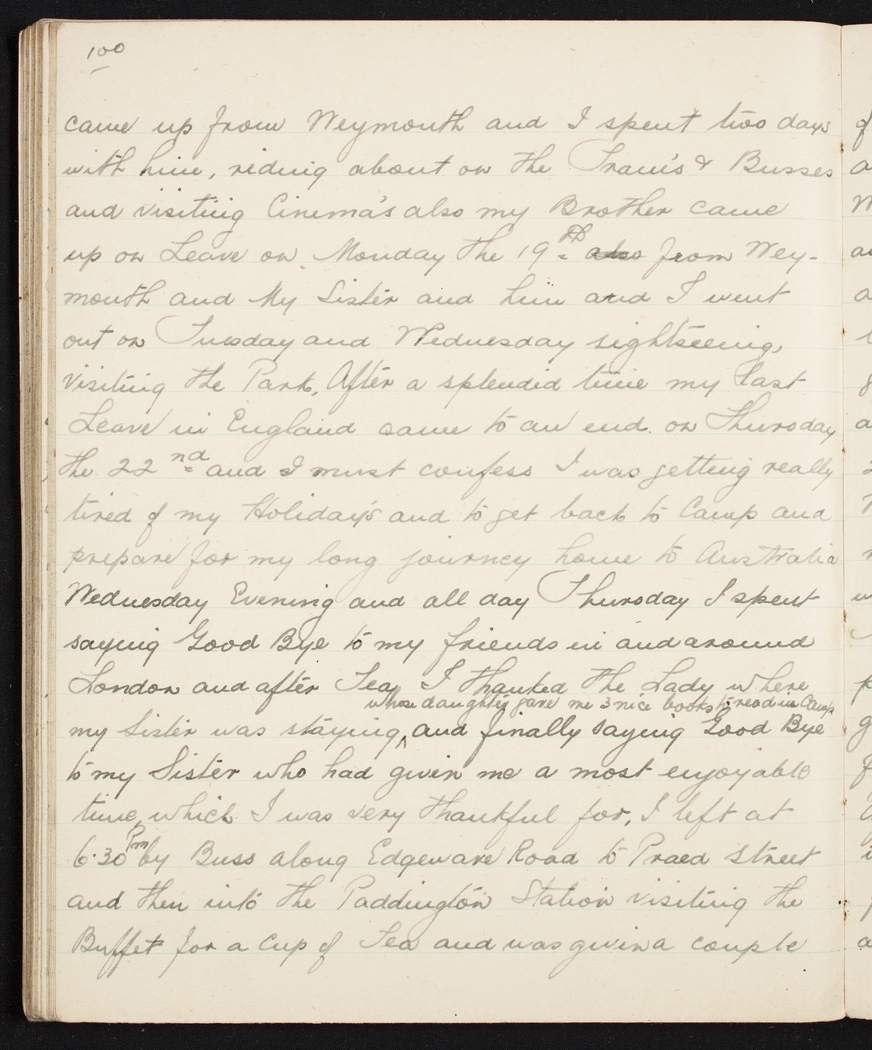 100
came up from Weymouth and I spent two days
with him, riding about on the Tram's & Busses
and visiting Cinema's also my Brother came
up on Leave on Monday the 19th also from Wey-
mouth and My Sister and him and I went
out on Tuesday and Wednesday sightseeing,
visiting the Park, After a splendid time my Last
Leave in England came to an end on Thursday
the 22nd and I must confess I was getting really
tired of my Holiday's and to get back to Camp and
prepare for my long journey home to Australia
Wednesday Evening and all day Thursday I spent
saying Good Bye to my friends in and around
London and after Tea, I thanked the Lady where
whose daughter gave me 3 nice books to read in Camp
my Sister was staying, and finally saying Good Bye
to my Sister who had given me a most enjoyable
time, which I was very thankful for, I left at
6.30 Pm by Buss along Edgeware Road to Praed Street
and then into the Paddington Station visiting the
Buffet for a Cup of Tea and was given a couple